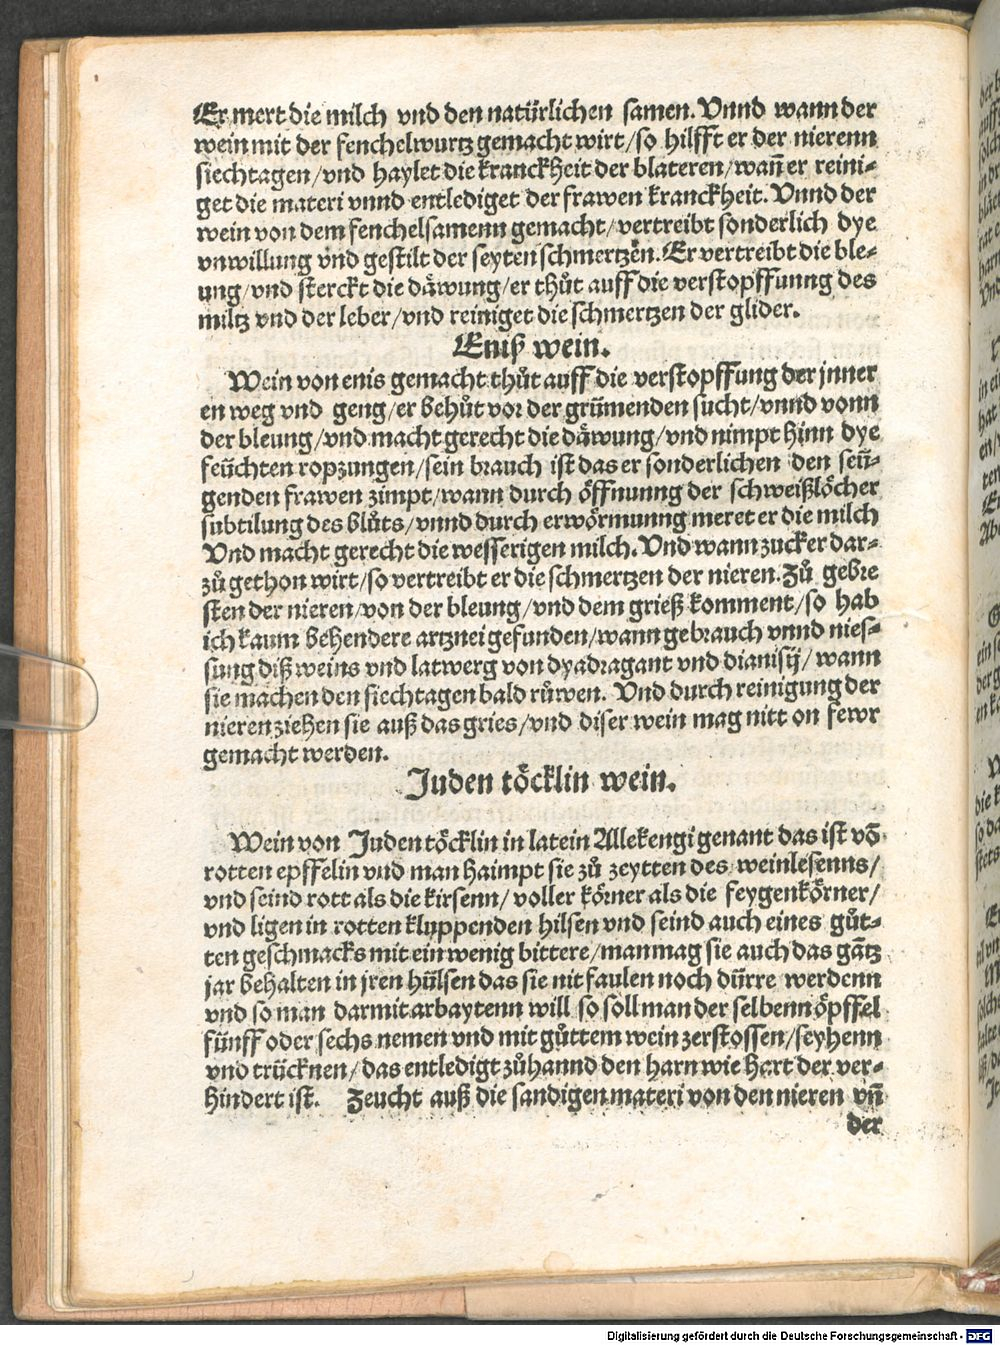 Er mert die milch vnd den natürlichen samen. Vnnd wann der
wein mit der fenchelwurtz gemacht wirt/so hilfft er der nierenn
siechtagen/vnd haylet die kranckheit der blateren/wañ er reini⸗
get die materi vnnd entlediget der frawen kranckheit. Vnnd der
wein von dem fenchelsamenn gemacht/vertreibt sonderlich dye
vnwillung vnd gestilt der seyten schmertzen. Er vertreibt die ble⸗
ung/vnd sterckt die däwung/er thůt auff die verstopffunng des
miltz vnd der leber/vnd reiniget die schmertzen der glider.
Eniß wein.
Wein von enis gemacht thůt auff die verstopffung der jnner
en weg vnd geng/er behůt vor der grümenden sucht/vnnd vonn
der bleung/vnd macht gerecht die däwung/vnd nimpt hinn dye
feüchten ropzungen/sein brauch ist das er sonderlichen den seü⸗
genden frawen zimpt/wann durch öffnunng der schweißlöcher
subtilung des blůts/vnnd durch erwörmunng meret er die milch
Vnd macht gerecht die wesserigen milch. Vnd wann zucker dar⸗
zů gethon wirt/so vertreibt er die schmertzen der nieren. Zů gebre
sten der nieren/von der bleung/vnd dem grieß komment/so hab
ich kaum behendere artznei gefunden/wann gebrauch vnnd nies⸗
sung diß weins vnd latwerg von dyadragant vnd dianisij/wann
sie machen den siechtagen bald růwen. Vnd durch reinigung der
nieren ziehen sie auß das gries/vnd diser wein mag nitt on fewr
gemacht werden.
Juden töcklin wein.
Wein von Juden töcklin in latein Allekengi genant das ist võ
rotten epffelin vnd man haimpt sie zů zeytten des weinlesenns/
vnd seind rott als die kirsenn/voller körner als die feygenkörner/
vnd ligen in rotten kluppenden hilsen vnd seind auch eines gůt⸗
ten geschmacks mit ein wenig bittere/man mag sie auch das gãtz
jar behalten in jren hülsen das sie nit faulen noch dürre werdenn
vnd so man darmit arbaytenn will so soll man der selbenn öpffel
fünff oder sechs nemen vnd mit gůttem wein zerstossen/seyhenn
vnd trücknen/das entledigt zůhannd den harn wie hart der ver⸗
hindert ist. Zeucht auß die sandigen materi von den nieren vñ
der
Digitalisierung gefördert durch die Deutsche Forschungsgemeinschaft - DFG